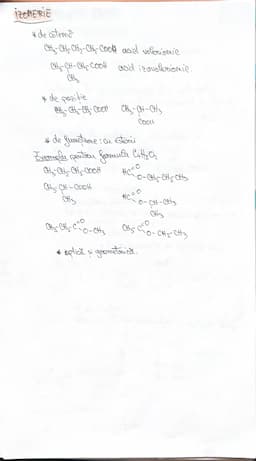 IZOMERIE
* de catenă
CH3-CH2-CH2-CH2-COOH acid valerianic
CH3-CH-CH2-COOH acid izovalerianic
CH3
* de poziție
CH3-CH2-CH2-COOH CH3-CH-CH3
COOH
* de funcțiune: cu esterii
Exemplu pentru formula C4H8O2
CH3-CH2-CH2-COOH HC=O O-CH2-CH2-CH3
CH3-CH-COOH HC=O O-CH-CH3
CH3 CH3
CH3-CH2-C=O O-CH3 CH3-C=O O-CH2-CH3
* optică și geometrică.